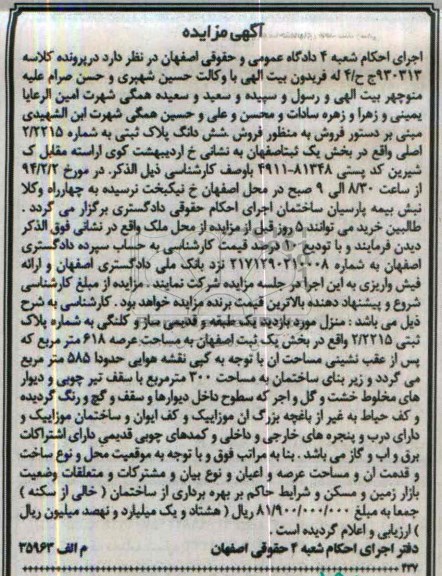 آگهی مزایده
اجرای احکام شعبه ۴ دادگاه عمومی و حقوقی اصفهان در نظر دارد درپرونده کلاسه
۹۳۰۳۱۳ج ح/۴ له فریدون بیت الهی با وکالت حسین شهپری و حسن صرام علیه
منوچهر بیت الهی و رسول و سپیده و سعید و سعیده همگی شهرت امین الرعایا
یمینی و زهرا و زهره سادات و محسن و علی و حسین همگی شهرت ابن الشهیدی
مبنی بر دستور فروش به منظور فروش شش دانگ پلاک ثبتی به شماره ۲/۲۲۱۵
اصلی واقع در بخش یک ثبتاصفهان به نشانی خ اردیبهشت کوی اراسته مقابل ک
شیرین کد پستی ۸۱۳۴۸-۴۹۱۱ باوصف کارشناسی ذیل الذکر. در مورخ ۹۴/۲/۲
از ساعت ۸/۳۰ الی ۹ صبح در محل اصفهان خ نیکبخت نرسیده به چهارراه وکلا
نبش بیمه پارسیان ساختمان اجرای احکام حقوقی دادگستری برگزار می گردد .
طالبین خرید می توانند ۵ روز قبل از مزایده از محل ملک واقع در نشانی فوق الذکر
دیدن فرمایند و با تودیع قیمت کارشناسی به حساب سپرده دادگستری
اصفهان به شماره نزد بانک ملی دادگستری اصفهان و ارائه
فیش واریزی به این اجرا در جلسه مزایده شرکت نمایند . مزایده از مبلغ کارشناسی
شروع و پیشنهاد دهنده بالاترین قیمت برنده مزایده خواهد بود . کارشناسی به شرح
ذیل می باشد : منزل مورد بازدید یک طبقه و قدیمی ساز و کلنگی به شماره پلاک
ثبتی ۲/۲۲۱۵ واقع در بخش یک ثبت اصفهان به مساحت عرصه ۶۱۸ متر مربع که
پس از عقب نشینی مساحت ان با توجه به کپی نقشه هوایی حدودا ۵۸۵ متر مربع
می گردد و زیر بنای ساختمان به مساحت ۳۰۰ مترمربع با سقف تیر چوبی و دیوار
های مخلوط خشت و گل و اجر که سطوح داخل دیوارها و سقف و گچ و رنگ گردیده
و کف حیاط به غیر از باغچه بزرگ ان موزاییک و کف ایوان و ساختمان موزاییک و
دارای درب و پنجره های خارجی و داخلی و کمدهای چوبی قدیمی دارای اشتراکات
برق و اب و گاز می باشد . بنا به مراتب فوق و با توجه به موقعیت محل و نوع ساخت
و قدمت ان و مساحت عرصه و اعیان و نوع بیان و مشترکات و متعلقات وضعیت
بازار زمین و مسکن و شرایط حاکم بر بهره برداری از ساختمان ( خالی از سکنه )
جمعا به مبلغ ۸۱/۹۰۰/۰۰۰/۰۰۰ ریال ( هشتاد و یک میلیارد و نهصد میلیون ریال
) ارزیابی و اعلام گردیده است .
دفتر اجرای احکام شعبه ۴ حقوقی اصفهان م الف ۳۵۹۶۳
۴۳۷